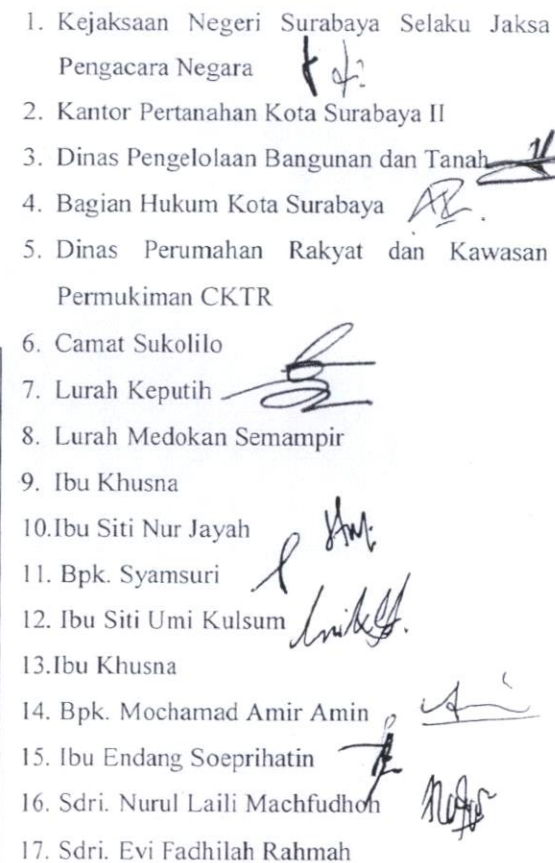 1. Kejaksaan Negeri Surabaya Selaku Jaksa
Pengacara Negara
2. Kantor Pertanahan Kota Surabaya II
3. Dinas Pengelolaan Bangunan dan Tanah
4. Bagian Hukum Kota Surabaya
5. Dinas Perumahan Rakyat dan Kawasan
Permukiman CKTR
6. Camat Sukolilo
7. Lurah Keputih
8. Lurah Medokan Semampir
9. Ibu Khusna
10.Ibu Siti Nur Jayah
11. Bpk. Syamsuri
12. Ibu Siti Umi Kulsum
13.Ibu Khusna
14. Bpk. Mochamad Amir Amin
15. Ibu Endang Soeprihatin
16. Sdri. Nurul Laili Machfudhoh
17. Sdri. Evi Fadhilah Rahmah